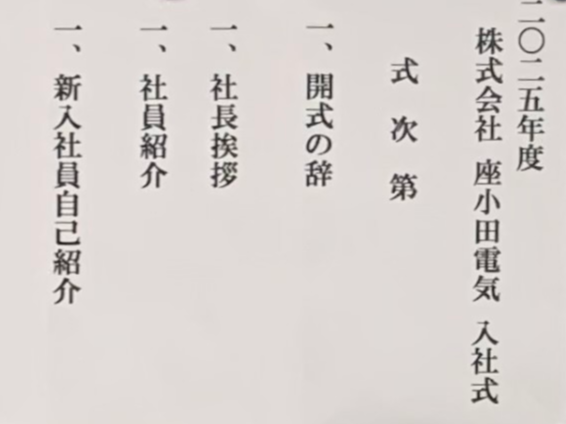 二〇二五年度
株式会社 座小田電気 入社式
式次第
一、開式の辞
一、社長挨拶
一、社員紹介
一、新入社員自己紹介